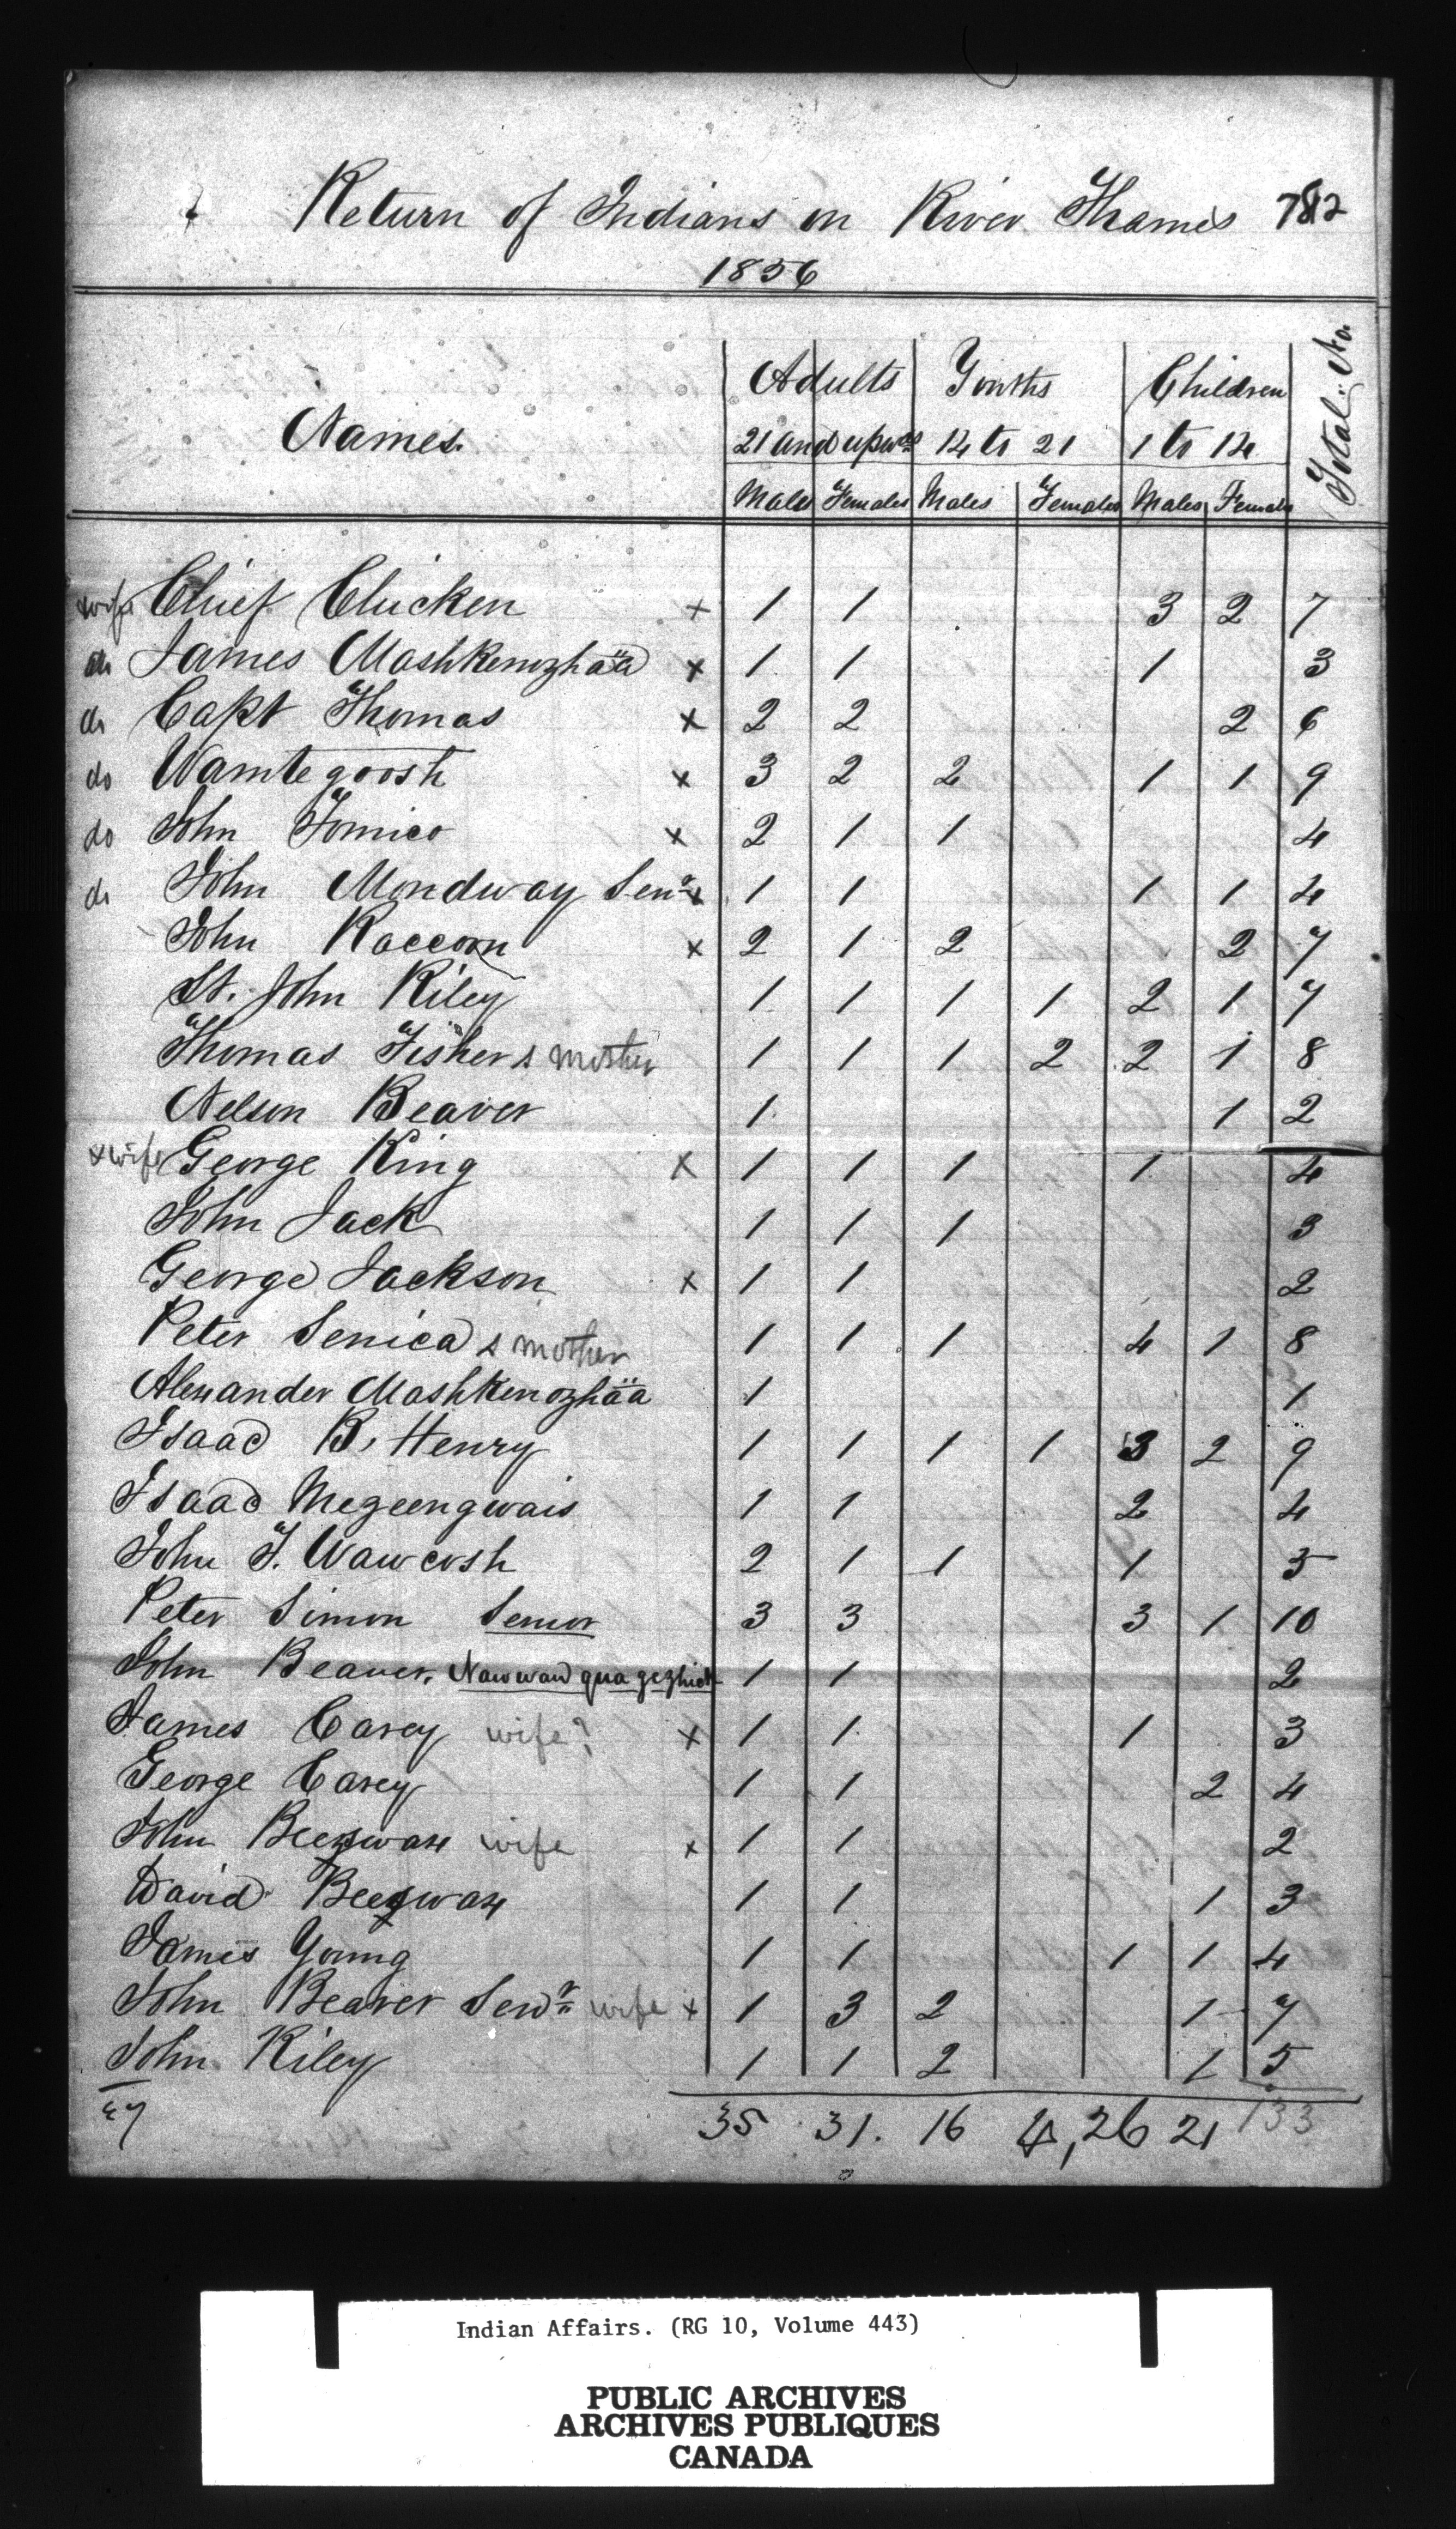 Return of Indians on River Thames 782
1856
Names. Adults Youths Children Total No.
21 and upwds 14 to 21 1 to 14
Males Females Males Females Males Females
+wife Chief Chicken + 1 1 3 2 7
do James Mashkenozhää x 1 1 1 3
do Capt Thomas x 2 2 2 6
do Wamtegoosh x 3 2 2 1 1 9
do John Tomico x 2 1 1 4
do John Mondway Senr x 1 1 1 1 4
John Raccoon x 2 1 2 2 7
St. John Riley 1 1 1 1 2 1 7
Thomas Fisher & mother 1 1 1 2 2 1 8
Nelson Beaver 1 1 2
+wife George King x 1 1 1 1 4
John Jack 1 1 1 3
George Jackson x 1 1 2
Peter Senica & mother 1 1 1 4 1 8
Alexander Mashkenozhää 1 1
Isaac B. Henry 1 1 1 1 3 2 9
Isaac Megeengwais 1 1 2 4
John T. Wawcosh 2 1 1 1 5
Peter Simon Senior 3 3 3 1 10
John Beaver. Nawwawquagezhick 1 1 2
James Carey wife? x 1 1 1 3
George Carey 1 1 2 4
John Beeswax wife x 1 1 2
David Beeswax 1 1 1 3
James Young 1 1 1 1 4
John Beaver Senr wife x 1 3 2 1 7
John Riley 1 1 2 1 5
27 35 31. 16 4, 26 21 133
Indian Affairs. (RG 10, Volume 443)
PUBLIC ARCHIVES
ARCHIVES PUBLIQUES
CANADA